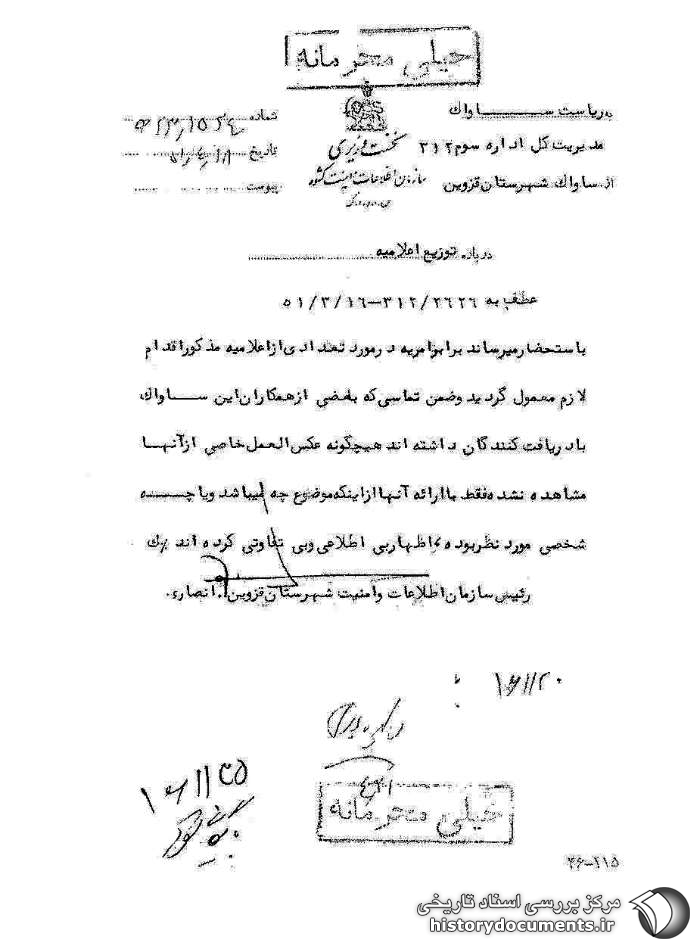 خیلی محرمانه
به ریاست ساواک
مدیریت کل اداره سوم ۳۱۲
از ساواک شهرستان قزوین
نخست وزیری
سازمان اطلاعات و امنیت کشور
شماره
تاریخ
پیوست
درباره توزیع اعلامیه
عطف به ۳۱۲/۲۶۲۶-۵۱/۳/۱۶
باستحضار میرساند برابر اوامریه در مورد تعدادی از اعلامیه مذکور اقدام
لازم معمول گردید و ضمن تماسی که بعضی از همکاران این ساواک
با دریافت کنندگان داشته اند هیچگونه عکس العمل خاصی از آنها
مشاهده نشده فقط با ارائه آنها از اینکه موضوع چه میباشد ویا چه
شخصی مورد نظر بوده اظهار بی اطلاعی وبی تفاوتی کرده اند
رئیس سازمان اطلاعات وامنیت شهرستان قزوین. انصاری.
خیلی محرمانه
۴۶-۲۱۵
مرکز بررسی اسناد تاریخی
historydocuments.ir